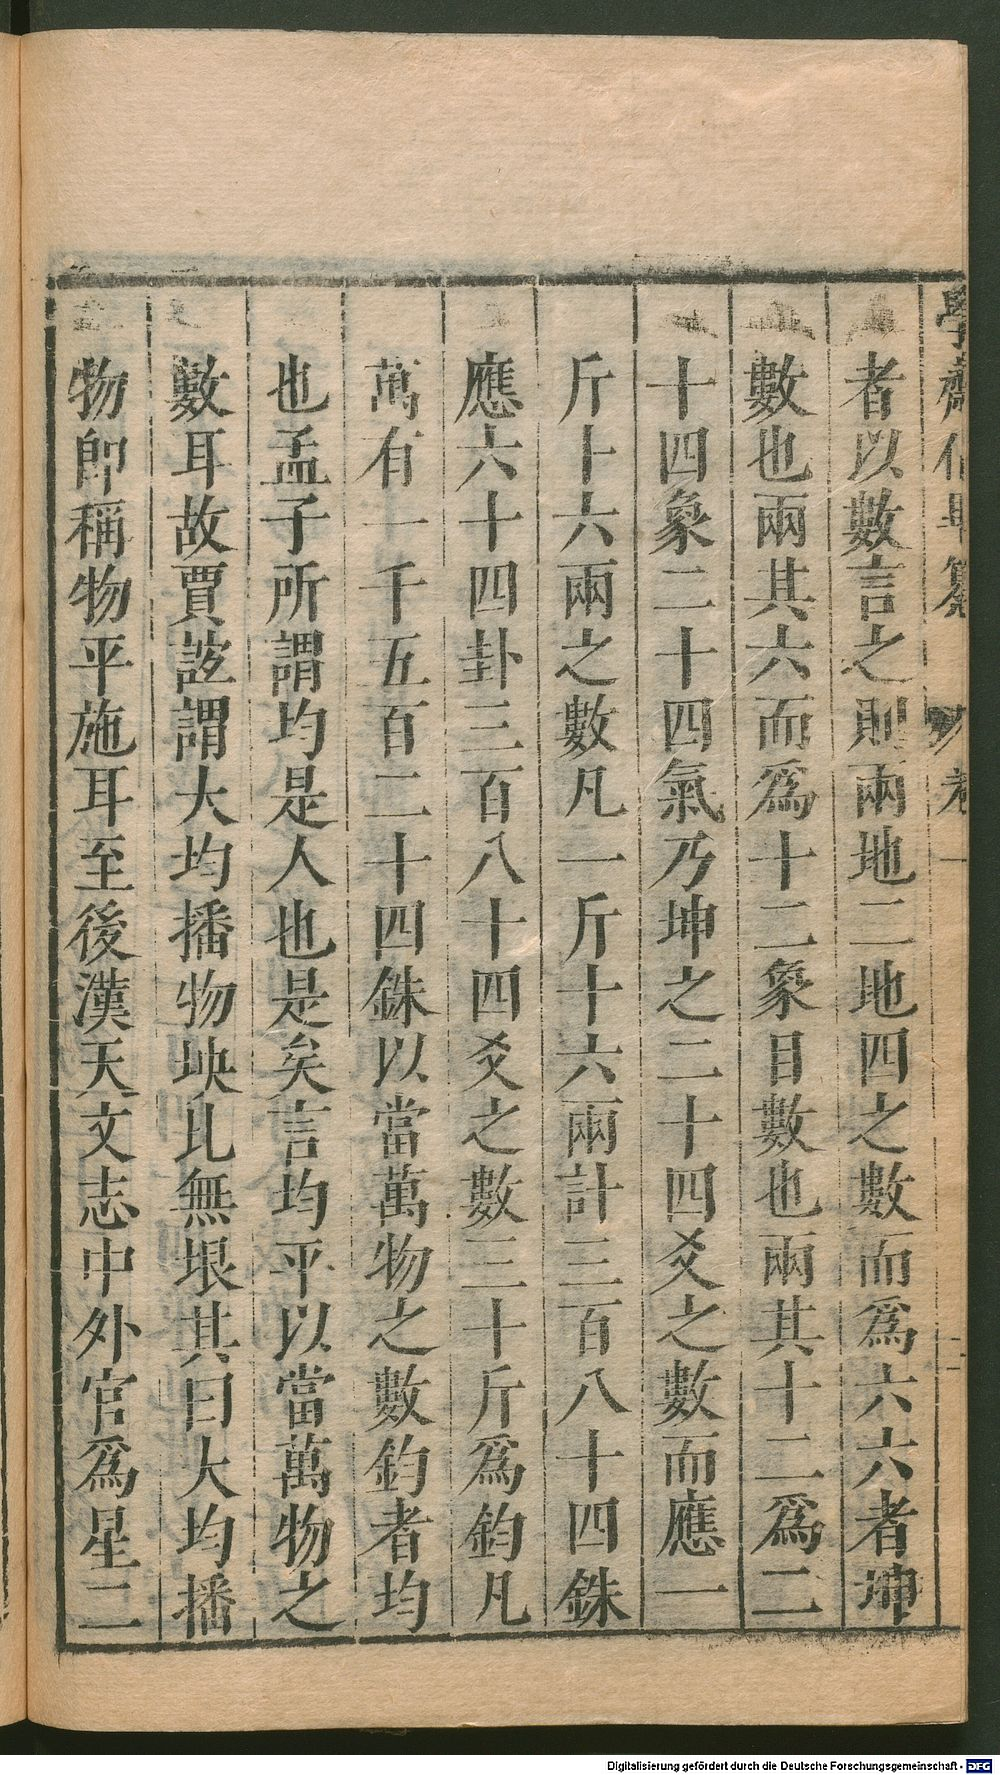 學齋佔畢纂 卷一
者以數言之則兩地二地四之數而爲六六者坤
數也兩其六而爲十二象目數也兩其十二爲二
十四象二十四氣乃坤之二十四爻之數而應一
斤十六兩之數凡一斤十六兩計三百八十四銖
應六十四卦三百八十四爻之數三十斤爲鈞凡
萬有一千五百二十四銖以當萬物之數鈞者均
也孟子所謂均是人也是矣言均平以當萬物之
數耳故賈誼謂大均播物坱圠無垠其曰大均播
物卽稱物平施耳至後漢天文志中外官爲星二
Digitalisierung gefördert durch die Deutsche Forschungsgemeinschaft - DFG